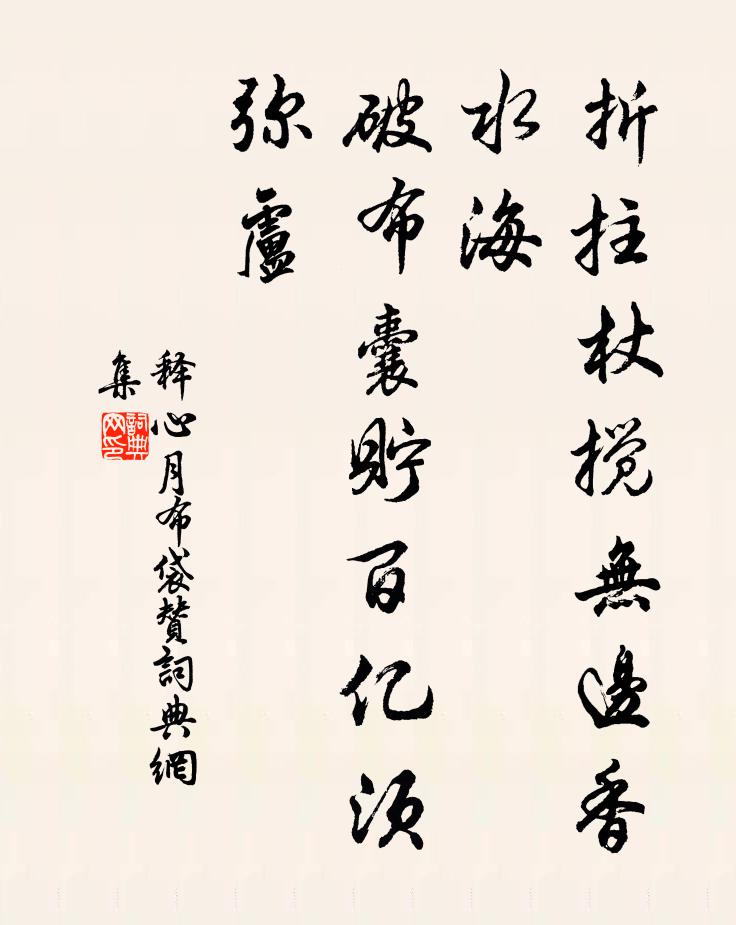 折拄杖搅無邊香
水海
破布囊貯百亿须
弥盧
释心月布袋贊詞典網
集
詞典
网印